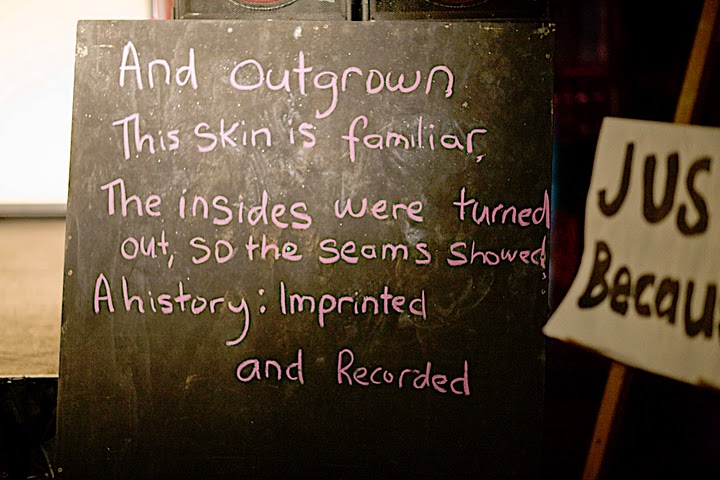 And Outgrown
This skin is familiar,
The insides were turned
out, so the seams showed
A history: Imprinted
and Recorded
JUS
Becau